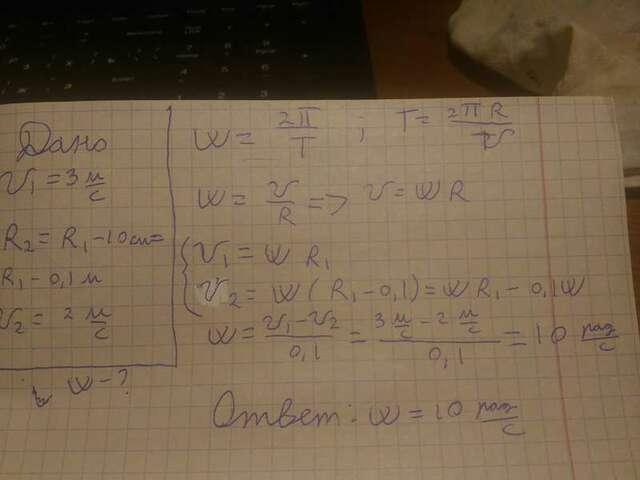 Дано
v₁ = 3 м/с
R₂ = R₁ - 10 см =
R₁ - 0,1 м
v₂ = 2 м/с
W - ?
W = 2π/T ; T = 2πR/v
W = v/R => v = WR
v₁ = W R₁
v₂ = W (R₁ - 0,1) = W R₁ - 0,1W
W = (v₁ - v₂)/0,1 = (3 м/с - 2 м/с)/0,1 = 10 рад/с
Ответ: W = 10 рад/с